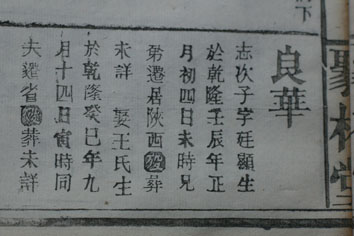 良華
志次子字廷顯生
於乾隆壬辰年正
月初四日未時兄
弟遷居陝西歿葬
未詳 娶王氏生
於乾隆癸巳年九
月十四日寅時同
夫遷省歿葬未詳